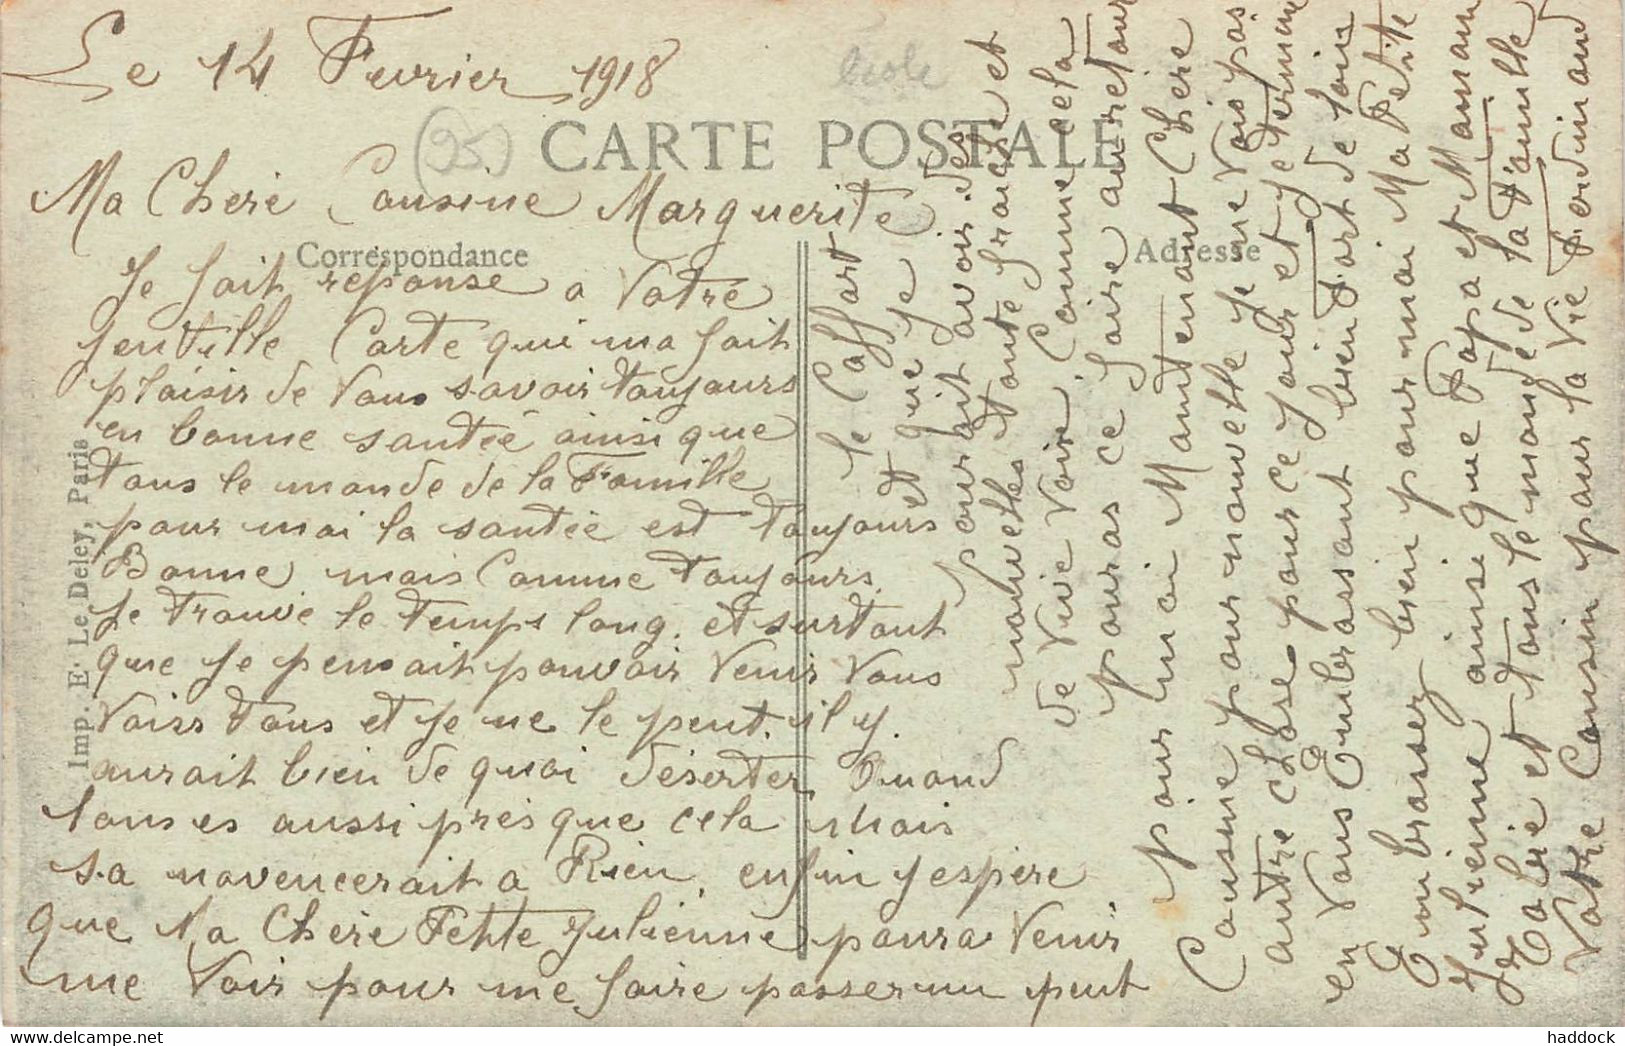 Le 14 Fevrier 1918
ecole
(95)
CARTE POSTALE
Ma Cheré Cousine Marguerité
Correspondance
Adresse
Je fait réponse a Votré
jentille Carte qui ma fait
plaisir de Vous savoir toujours
en bonne santéé ainsi que
tous le monde de la Famille
pour moi la santéé est toujours
Bonne mais Comme toujours
Je trouve le temps long. et surtout
que je pensait pouvoir Venir Vous
Voirs tous et je ne le peut. il y
aurait bien de quoi déserter Quand
lons es aussi près que cela mais
sa navencerait a Rien, enfin jespère
que Ma Chère Petite Julienne poura Venir
me Voir pour me faire passer un peut
le Caffart
et que je
pourait avoir des
nouvelles tante fraiche et
de Vive Voie. Comme cela
pouras ce faire au retour
pour moi Mantenant Chère
Cousine pour nouvelle je ne Vois pas
autre chose pour ce jour et je termine
en Vous Embrassant bien fort de loin
Embrassez bien pour moi Ma Petite
Julienne ainsi que Papa et Maman
et tous le monde de la Famille
Votre Cousin pour la Vie Ferdinand
Imp. E. Le Deley, Paris
delcampe.net
haddock